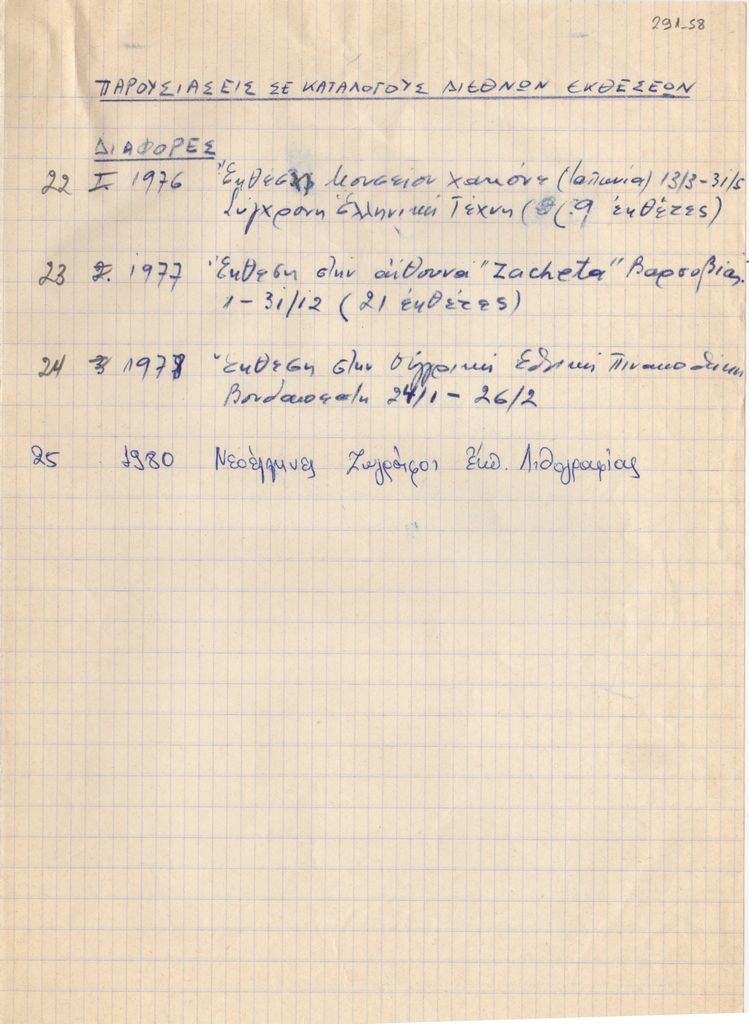 291-58
ΠΑΡΟΥΣΙΑΣΕΙΣ ΣΕ ΚΑΤΑΛΟΓΟΥΣ ΔΙΕΘΝΩΝ ΕΚΘΕΣΕΩΝ
ΔΙΑΦΟΡΕΣ
22 I 1976 Έκθεση Μουσείου Χακόνε (Ιαπωνία) 13/3-31/5
Σύγχρονη Ελληνική Τέχνη (9 έκθέτες)
23 1977 Έκθεση στην αίθουσα "Zacheta" Βαρσοβίας
1-31/12 (21 έκθέτες)
24 3 1978 Έκθεση στην Ούγγρική Εθνική Πινακοθήκη
Βουδαπέστη 24/1 - 26/2
25 1980 Νεοέλληνες Ζωγράφοι Έκθ. Λιθογραφίας